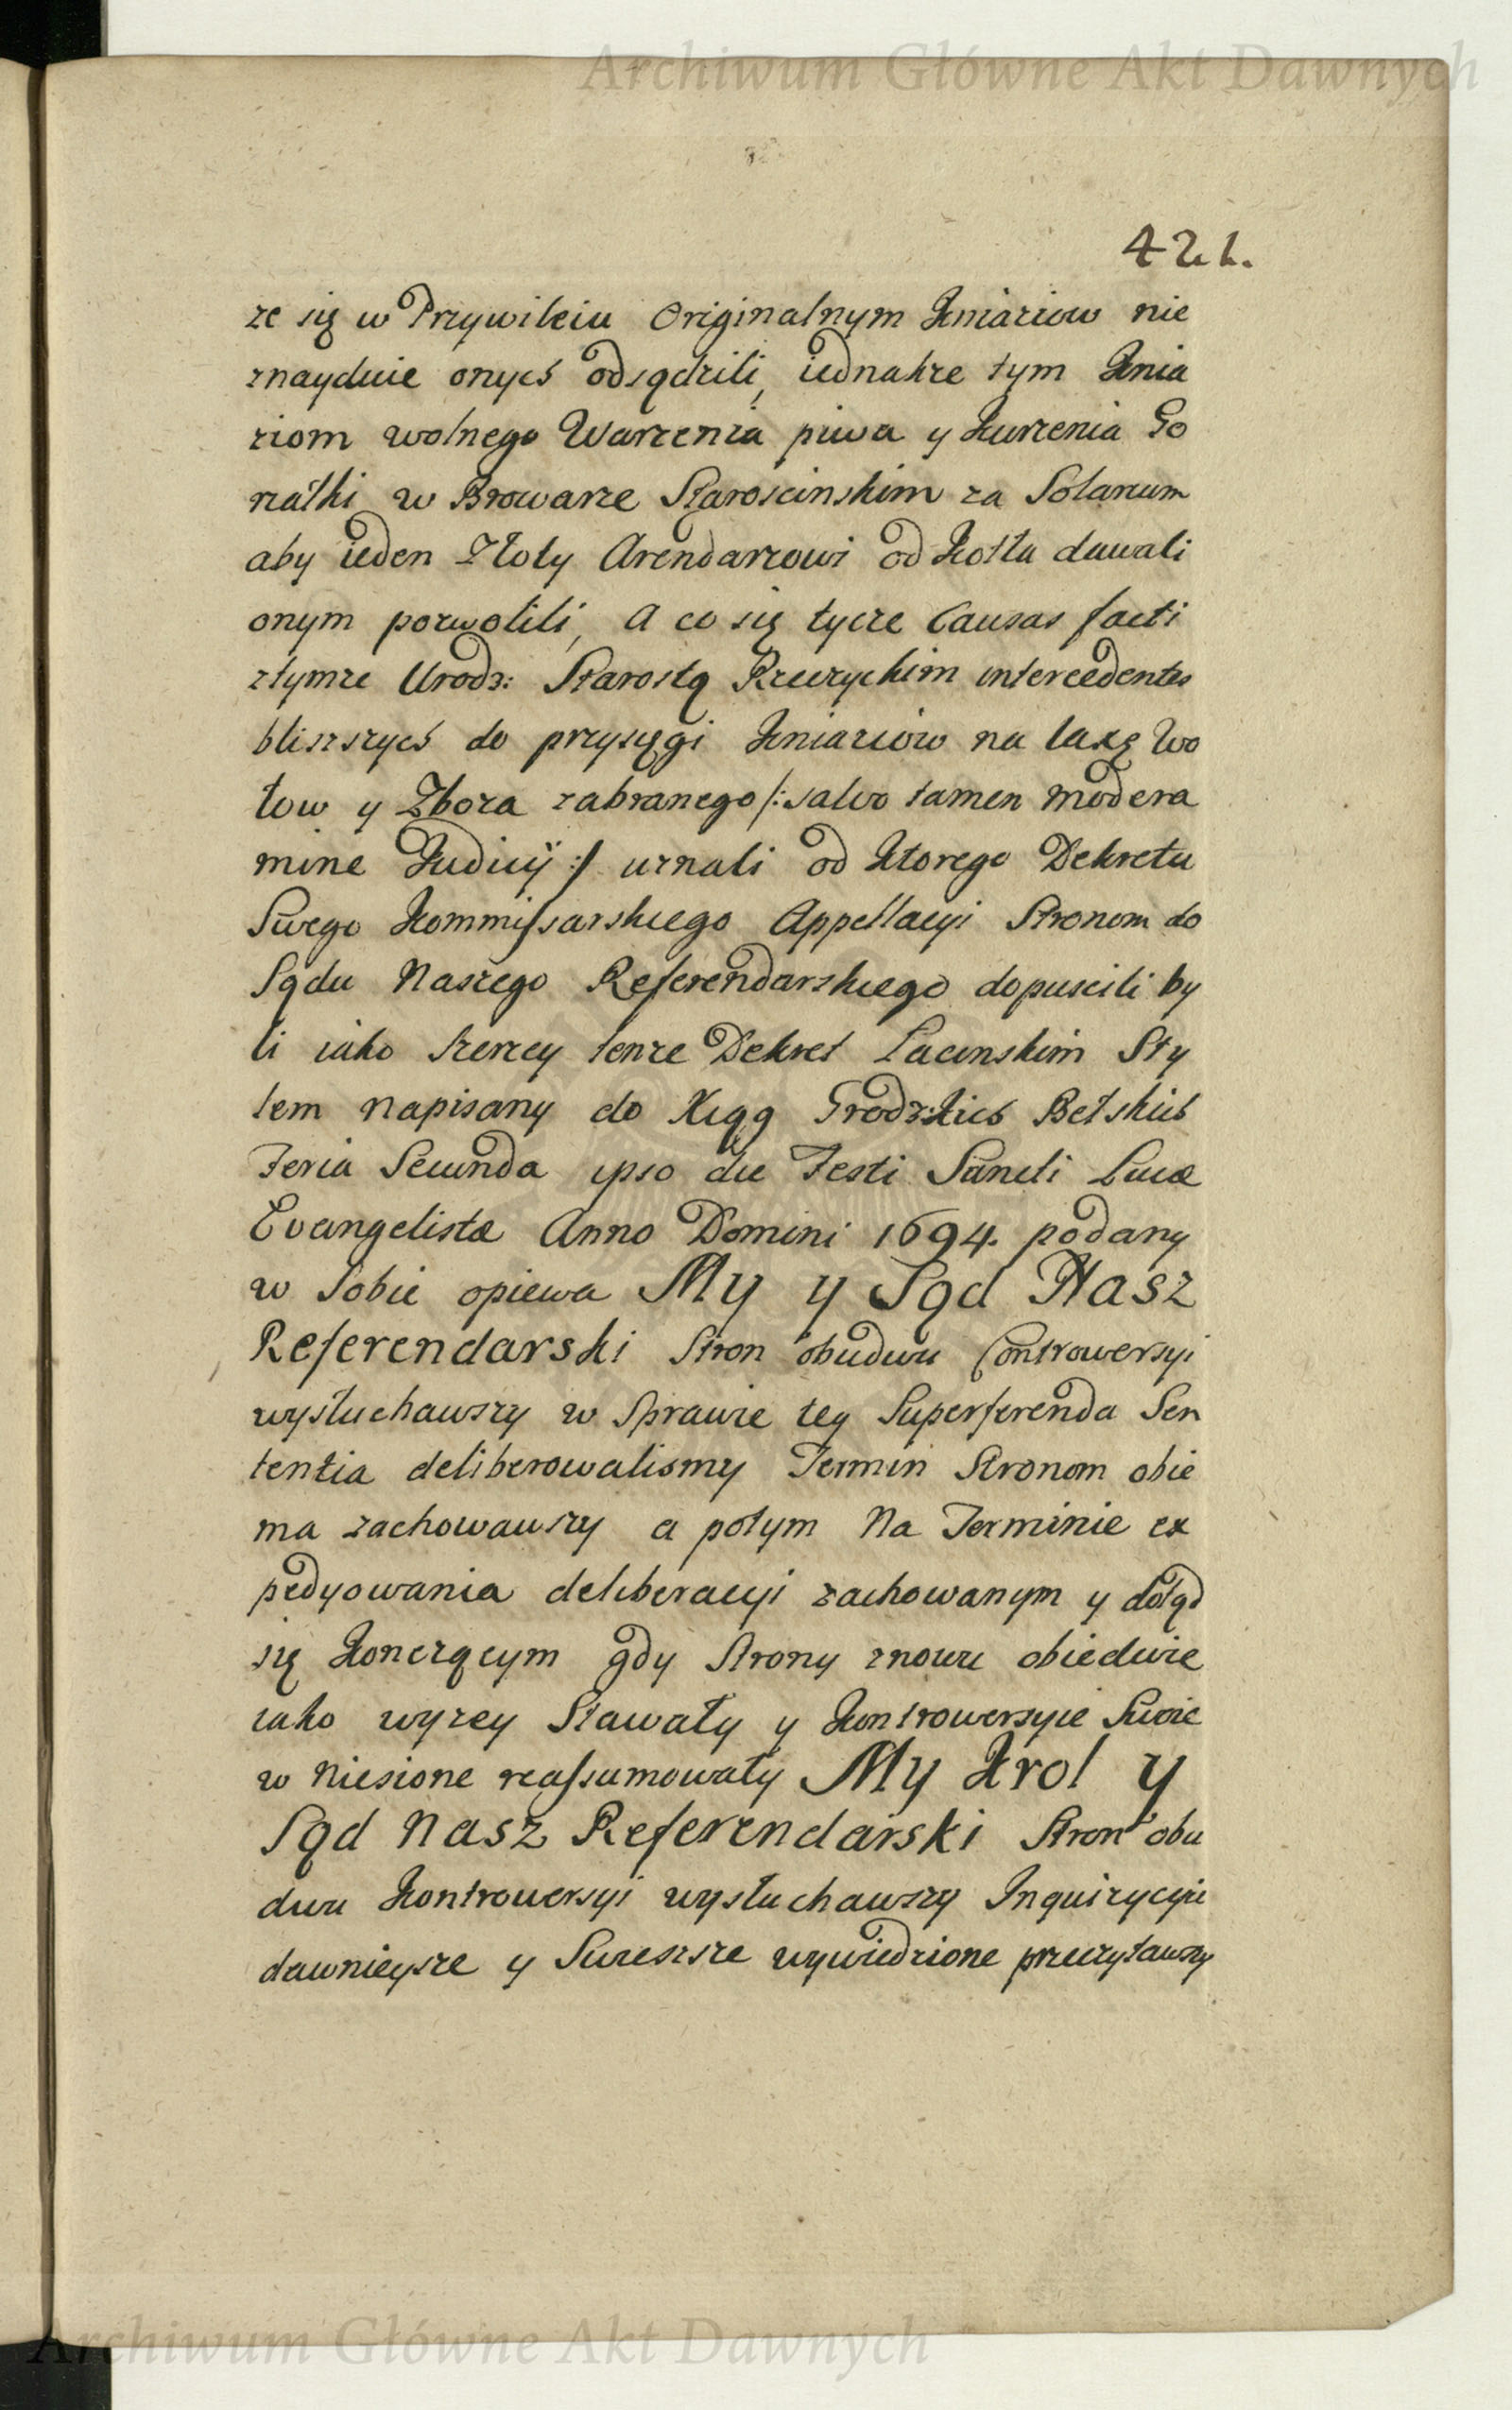 Archiwum Główne Akt Dawnych
421.
ze się w Przywileiu Originalnym Kniaziow nie
znayduie onych odsądzili, iednakze tym Knia
ziom wolnego Warzenia piwa y Kurzenia Go
rzałki w Browarze Staroscinskim za Solarium
aby ieden Złoty Arendarzowi od Kotła dawali
onym pozwolili, A co się tycze Causas facti
ztymze Urodz: Starostą Rzeczyckim intercedentes
bliszszych do przysięgi Kniaziów na taxę Wo
łow y Zboza zabranego /: salvo tamen modera
mine Judicÿ :/ uznali od Ktorego Dekretu
Swego Kommissarskiego Appellacyi Stronom do
Sądu Naszego Referendarskiego dopuscili by
li iako szerzey tenze Dekret Łacinskim Sty
lem napisany do Xiąg Grodzkich Bełskich
Feria Secunda ipso die Festi Sancti Lucæ
Evangelistæ Anno Domini 1694. podany
w Sobie opiewa My y Sąd Nasz
Referendarski Stron obudwu Controwersyi
wysłuchawszy w Sprawie tey Superferenda Sen
tentia deliberowalismy Termin Stronom obie
ma zachowawszy a potym Na Terminie ex
pedyowania deliberacyi zachowanym y dotąd
się Konczącym gdy Strony znowu obiedwie
iako wyzey Stawały y Kontrowersyie Swoie
w niesione reassumowały My Krol y
Sąd Nasz Referendarski Stron obu
dwu Kontrowersyi wysłuchawszy Inquizycyie
dawnieysze y Swieszsze wywiedzione przeczytawszy
Archiwum Główne Akt Dawnych